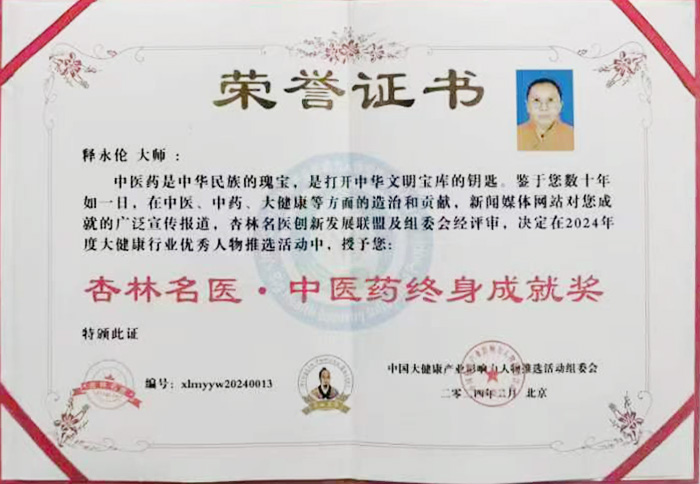 荣誉证书
释永伦 大师：
中医药是中华民族的瑰宝，是打开中华文明宝库的钥匙。鉴于您数十年
如一日，在中医、中药、大健康等方面的造诣和贡献，新闻媒体网站对您成
就的广泛宣传报道，杏林名医创新发展联盟及组委会经评审，决定在2024年
度大健康行业优秀人物推选活动中，授予您：
杏林名医·中医药终身成就奖
特颁此证
编号：xlmyyw20240013
中国大健康产业影响力人物推选活动组委会
二〇二四年 月 北京